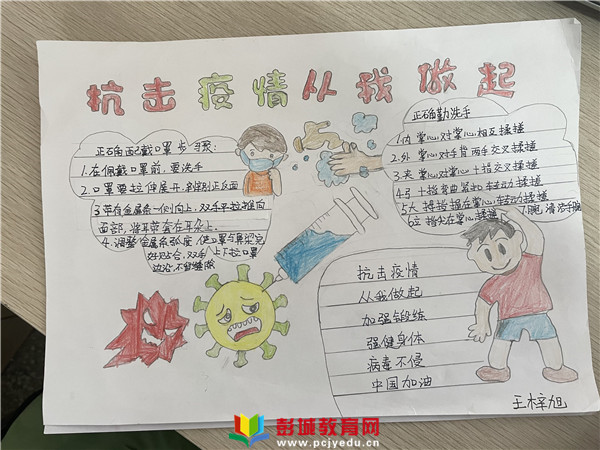 抗击疫情从我做起
正确配戴口罩步骤:
1.在佩戴口罩前,要洗手
2.口罩要拉伸展开,辨别正反面
3.带有金属条一侧向上,双手平拉推向
面部,将耳带套在耳朵上.
4.调整金属条弧度,使口罩与鼻梁完
好贴合,双手上下拉口罩
边沿,不留缝隙
正确勤洗手
1.内 掌心对掌心相互揉搓
2.外 掌心对手背两手交叉揉搓
3.夹 掌心对掌心十指交叉揉搓
4.弓 十指弯曲紧扣转动揉搓
5.大 拇指握在掌心转动揉搓
6立 指尖在掌心揉搓
7.腕,清洗手腕
抗击疫情
从我做起
加强锻练
强健身体
病毒不侵
中国加油
王梓旭
彭城教育网
www.pcjyedu.cn